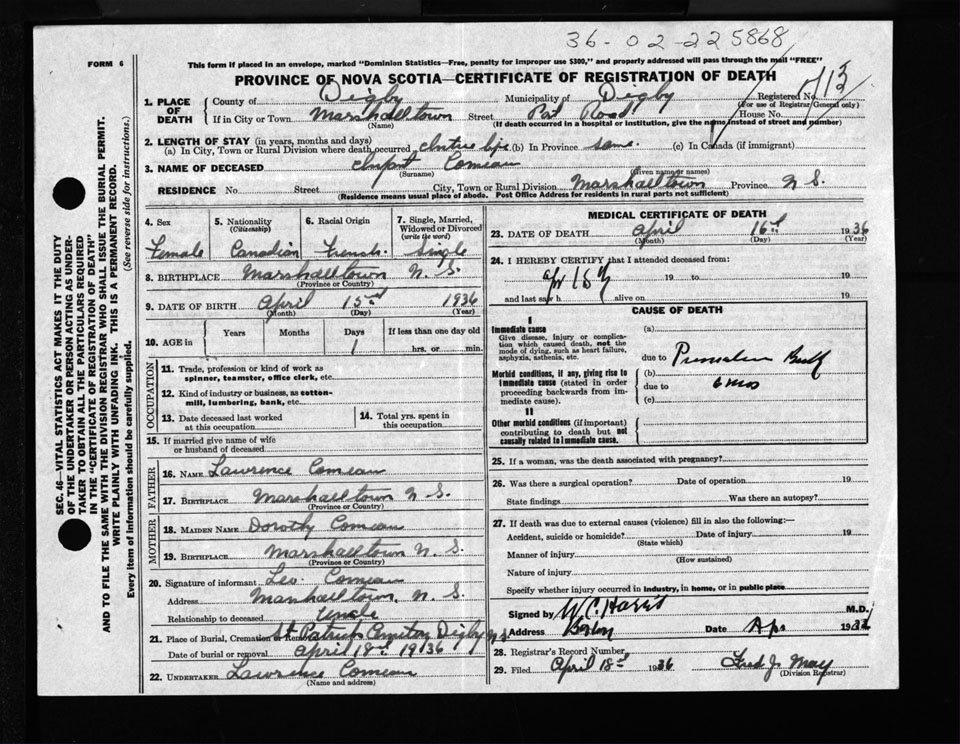 36-02-225868
FORM 6
This form if placed in an envelope, marked "Dominion Statistics—Free, penalty for improper use $300," and properly addressed will pass through the mail "FREE"
PROVINCE OF NOVA SCOTIA—CERTIFICATE OF REGISTRATION OF DEATH
Registered No.
(For use of Registrar General only)
1. PLACE OF DEATH
County of Digby Municipality of Digby
If in City or Town Marshalltown Street Road House No.
(Name) (If death occurred in a hospital or institution, give the name instead of street and number)
2. LENGTH OF STAY (in years, months and days)
(a) In City, Town or Rural Division where death occurred entire life (b) In Province same. (c) In Canada (if immigrant)
3. NAME OF DECEASED Infant Comeau
(Surname) (Given name or names)
RESIDENCE No. Street City, Town or Rural Division Marshalltown Province N S.
(Residence means usual place of abode. Post Office Address for residents in rural parts not sufficient)
4. Sex
Female
5. Nationality
(Citizenship)
Canadian
6. Racial Origin
French
7. Single, Married, Widowed or Divorced
(write the word)
Single
8. BIRTHPLACE Marshalltown N. S.
(Province or Country)
9. DATE OF BIRTH April 15 1936
(Month) (Day) (Year)
10. AGE in
Years Months Days If less than one day old
1 hrs. or min.
OCCUPATION
11. Trade, profession or kind of work as
spinner, teamster, office clerk, etc.
12. Kind of industry or business, as cotton-
mill, lumbering, bank, etc.
13. Date deceased last worked
at this occupation
14. Total yrs. spent in
this occupation
15. If married give name of wife
or husband of deceased
FATHER
16. NAME Lawrence Comeau
17. BIRTHPLACE Marshalltown N. S.
(Province or Country)
MOTHER
18. MAIDEN NAME Dorothy Comeau
19. BIRTHPLACE Marshalltown N. S.
(Province or Country)
20. Signature of informant Leo. Comeau
Address Marshalltown, N. S.
Relationship to deceased Uncle
21. Place of Burial, Cremation or Removal St Patricks Cemetery Digby N.S.
Date of burial or removal April 18 1936
22. UNDERTAKER Lawrence Comeau
(Name and address)
MEDICAL CERTIFICATE OF DEATH
23. DATE OF DEATH April 16th 1936
(Month) (Day) (Year)
24. I HEREBY CERTIFY that I attended deceased from:
19 to 19
and last saw h alive on 19
CAUSE OF DEATH
I
Immediate cause
Give disease, injury or complication which caused death, not the mode of dying, such as heart failure, asphyxia, asthenia, etc.
(a)
due to Premature Birth
Morbid conditions, if any, giving rise to immediate cause (stated in order proceeding backwards from immediate cause).
(b)
due to 6 mos
(c)
II
Other morbid conditions (if important) contributing to death but not causally related to immediate cause.
25. If a woman, was the death associated with pregnancy?
26. Was there a surgical operation? Date of operation 19
State findings Was there an autopsy?
27. If death was due to external causes (violence) fill in also the following:—
Accident, suicide or homicide? Date of injury 19
(State which)
Manner of injury
(How sustained)
Nature of injury
Specify whether injury occurred in industry, in home, or in public place
Signed by M.D.
Address Date Apr 1936
28. Registrar's Record Number
29. Filed April 18 1936 Fred J. May
(Division Registrar)
SEC. 46—VITAL STATISTICS ACT MAKES IT THE DUTY
OF THE UNDERTAKER OR PERSON ACTING AS UNDER-
TAKER TO OBTAIN ALL THE PARTICULARS REQUIRED
IN THE "CERTIFICATE OF REGISTRATION OF DEATH"
AND TO FILE THE SAME WITH THE DIVISION REGISTRAR WHO SHALL ISSUE THE BURIAL PERMIT.
WRITE PLAINLY WITH UNFADING INK. THIS IS A PERMANENT RECORD.
Every item of information should be carefully supplied. (See reverse side for instructions.)